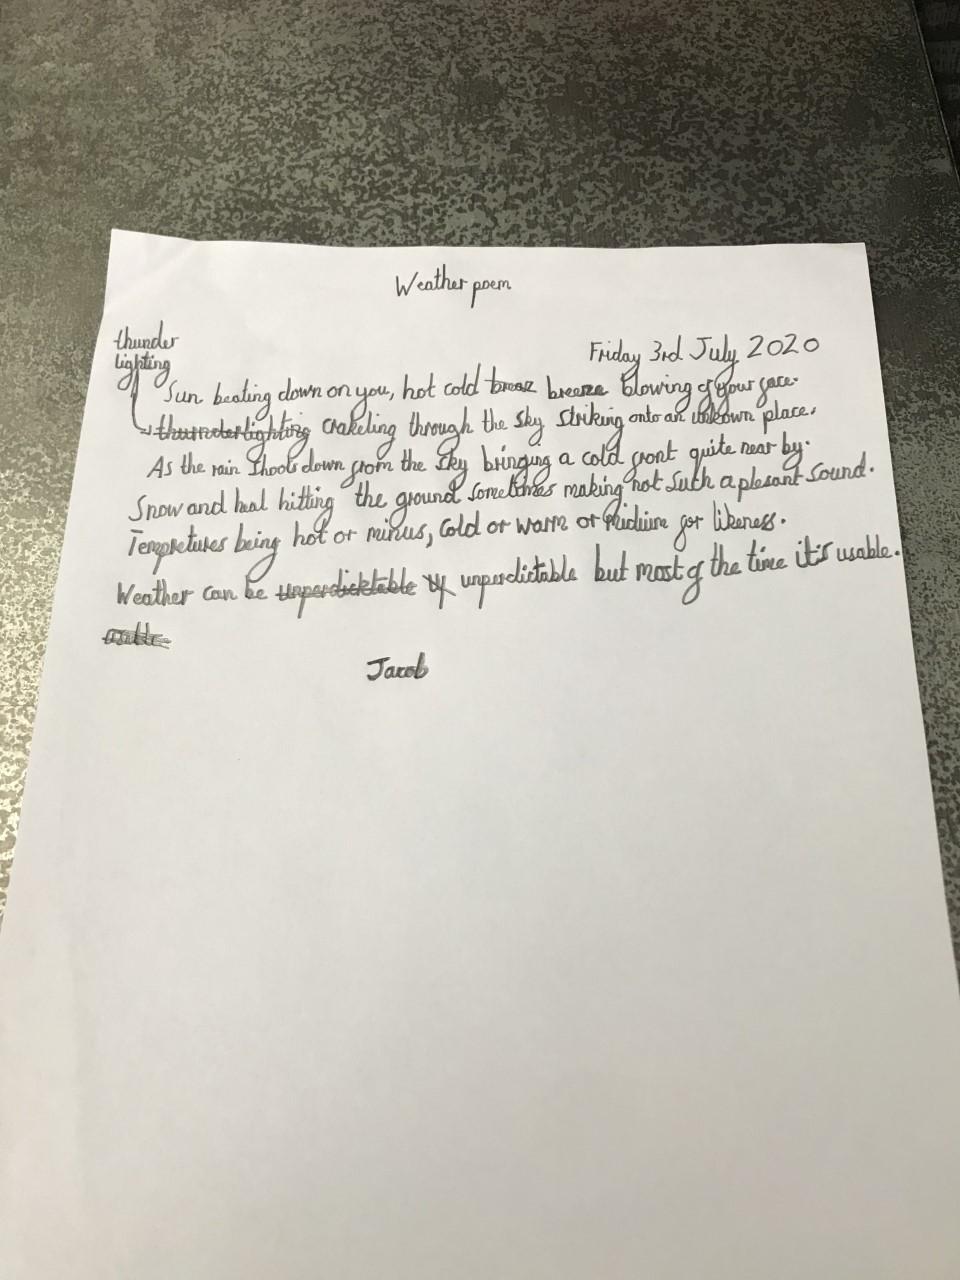 Weather poem
Friday 3rd July 2020
thunder
lighting
Sun beating down on you, hot cold breaz breeze blowing of your face.
thurnderlighting crakeling through the sky striking onto an unkown place.
As the rain shoots down from the sky bringing a cold front quite near by.
Snow and heal hitting the ground sometimes making not such a plesant sound.
Tempretures being hot or minus, cold or warm or midium for likeness.
Weather can be unperdicktable unperdictable but most of the time it's usable.
Jacob